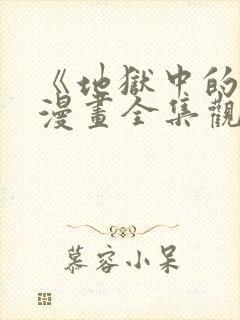 《地獄中的
漫畫全集觀
慕容小呆